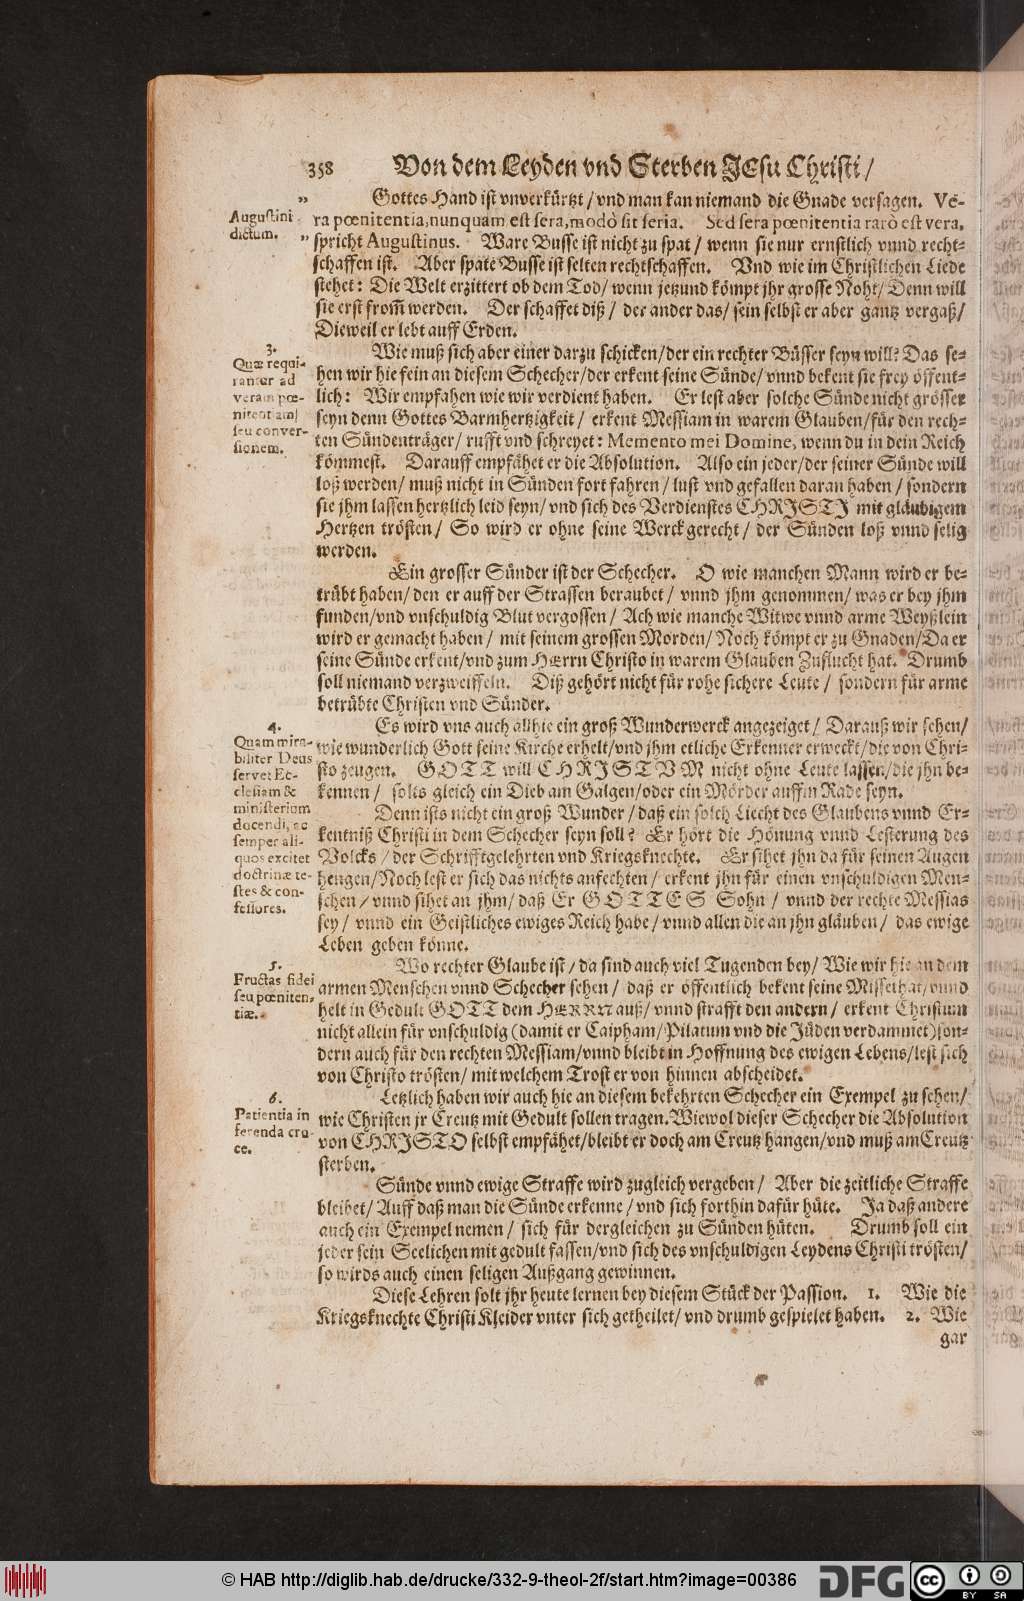 358 Von dem Leyden vnd Sterben JEsu Christi /
Gottes Hand ist vnverkürtzt / vnd man kan niemand die Gnade versagen. Ve-
ra pœnitentia, nunquam est sera, modò sit seria. Sed sera pœnitentia rarò est vera,
spricht Augustinus. Ware Busse ist nicht zu spat / wenn sie nur ernstlich vnnd recht-
schaffen ist. Aber spate Busse ist selten rechtschaffen. Vnd wie im Christlichen Liede
stehet: Die Welt erzittert ob dem Tod / wenn jetzund kömpt jhr grosse Noht / Denn will
sie erst from̃ werden. Der schaffet diß / der ander das / sein selbst er aber gantz vergaß /
Dieweil er lebt auff Erden.
Augustini
dictum.
Wie muß sich aber einer darzu schicken / der ein rechter Büsser seyn will? Das se-
hen wir hie fein an diesem Schecher / der erkent seine Sünde / vnnd bekent sie frey öffent-
lich: Wir empfahen wie wir verdient haben. Er lest aber solche Sünde nicht grösser
seyn denn Gottes Barmhertzigkeit / erkent Messiam in warem Glauben / für den rech-
ten Sündenträger / rufft vnd schreyet: Memento mei Domine, wenn du in dein Reich
kömmest. Darauff empfähet er die Absolution. Also ein jeder / der seiner Sünde will
loß werden / muß nicht in Sünden fort fahren / lust vnd gefallen daran haben / sondern
sie jhm lassen hertzlich leid seyn / vnd sich des Verdienstes CHRISTI mit gläubigem
Hertzen trösten / So wird er ohne seine Werck gerecht / der Sünden loß vnnd selig
werden.
3.
Quæ requi-
rantur ad
veram pœ-
nitentiam /
seu conver-
sionem.
Ein grosser Sünder ist der Schecher. O wie manchen Mann wird er be-
trübt haben / den er auff der Strassen beraubet / vnnd jhm genommen / was er bey jhm
funden / vnd vnschuldig Blut vergossen / Ach wie manche Witwe vnnd arme Weyßlein
wird er gemacht haben / mit seinem grossen Morden / Noch kömpt er zu Gnaden / Da er
seine Sünde erkent / vnd zum HErrn Christo in warem Glauben Zuflucht hat. Drumb
soll niemand verzweiffeln. Diß gehört nicht für rohe sichere Leute / sondern für arme
betrübte Christen vnd Sünder.
Es wird vns auch allhie ein groß Wunderwerck angezeiget / Darauß wir sehen /
wie wunderlich Gott seine Kirche erhelt / vnd jhm etliche Erkenner erweckt / die von Chri-
sto zeugen. GOTT will CHRISTVM nicht ohne Leute lassen / die jhn be-
kennen / solts gleich ein Dieb am Galgen / oder ein Mörder auffm Rade seyn.
4.
Quam mira-
biliter Deus
servet Ec-
clesiam &
ministerium
docendi, ac
semper ali-
quos excitet
doctrinæ te-
stes & con-
fessores.
Denn ists nicht ein groß Wunder / daß ein solch Liecht des Glaubens vnnd Er-
kentniß Christi in dem Schecher seyn soll? Er hört die Hönung vnnd Lesterung des
Volcks / der Schrifftgelehrten vnd Kriegsknechte. Er sihet jhn da für seinen Augen
hengen / Noch lest er sich das nichts anfechten / erkent jhn für einen vnschuldigen Men-
schen / vnnd sihet an jhm / daß Er GOTTES Sohn / vnnd der rechte Messias
sey / vnnd ein Geistliches ewiges Reich habe / vnnd allen die an jhn gläuben / das ewige
Leben geben könne.
Wo rechter Glaube ist / da sind auch viel Tugenden bey / Wie wir hie an dem
armen Menschen vnnd Schecher sehen / daß er öffentlich bekent seine Missethat / vnnd
helt in Gedult GOTT dem HERRN auß / vnnd strafft den andern / erkent Christum
nicht allein für vnschuldig (damit er Caipham / Pilatum vnd die Jüden verdammet) son-
dern auch für den rechten Messiam / vnnd bleibt in Hoffnung des ewigen Lebens / lest sich
von Christo trösten / mit welchem Trost er von hinnen abscheidet.
5.
Fructus fidei
seu pœniten-
tiæ.
Letzlich haben wir auch hie an diesem bekehrten Schecher ein Exempel zu sehen /
wie Christen jr Creutz mit Gedult sollen tragen. Wiewol dieser Schecher die Absolution
von CHRISTO selbst empfähet / bleibt er doch am Creutz hangen / vnd muß am Creutz
sterben.
6.
Patientia in
ferenda cru-
ce.
Sünde vnnd ewige Straffe wird zugleich vergeben / Aber die zeitliche Straffe
bleibet / Auff daß man die Sünde erkenne / vnd sich forthin dafür hüte. Ja daß andere
auch ein Exempel nemen / sich für dergleichen zu Sünden hüten. Drumb soll ein
jeder sein Seelichen mit gedult fassen / vnd sich des vnschuldigen Leydens Christi trösten /
so wirds auch einen seligen Außgang gewinnen.
Diese Lehren solt jhr heute lernen bey diesem Stück der Passion. 1. Wie die
Kriegsknechte Christi Kleider vnter sich getheilet / vnd drumb gespielet haben. 2. Wie
gar
© HAB http://diglib.hab.de/drucke/332-9-theol-2f/start.htm?image=00386
DFG
cc BY SA